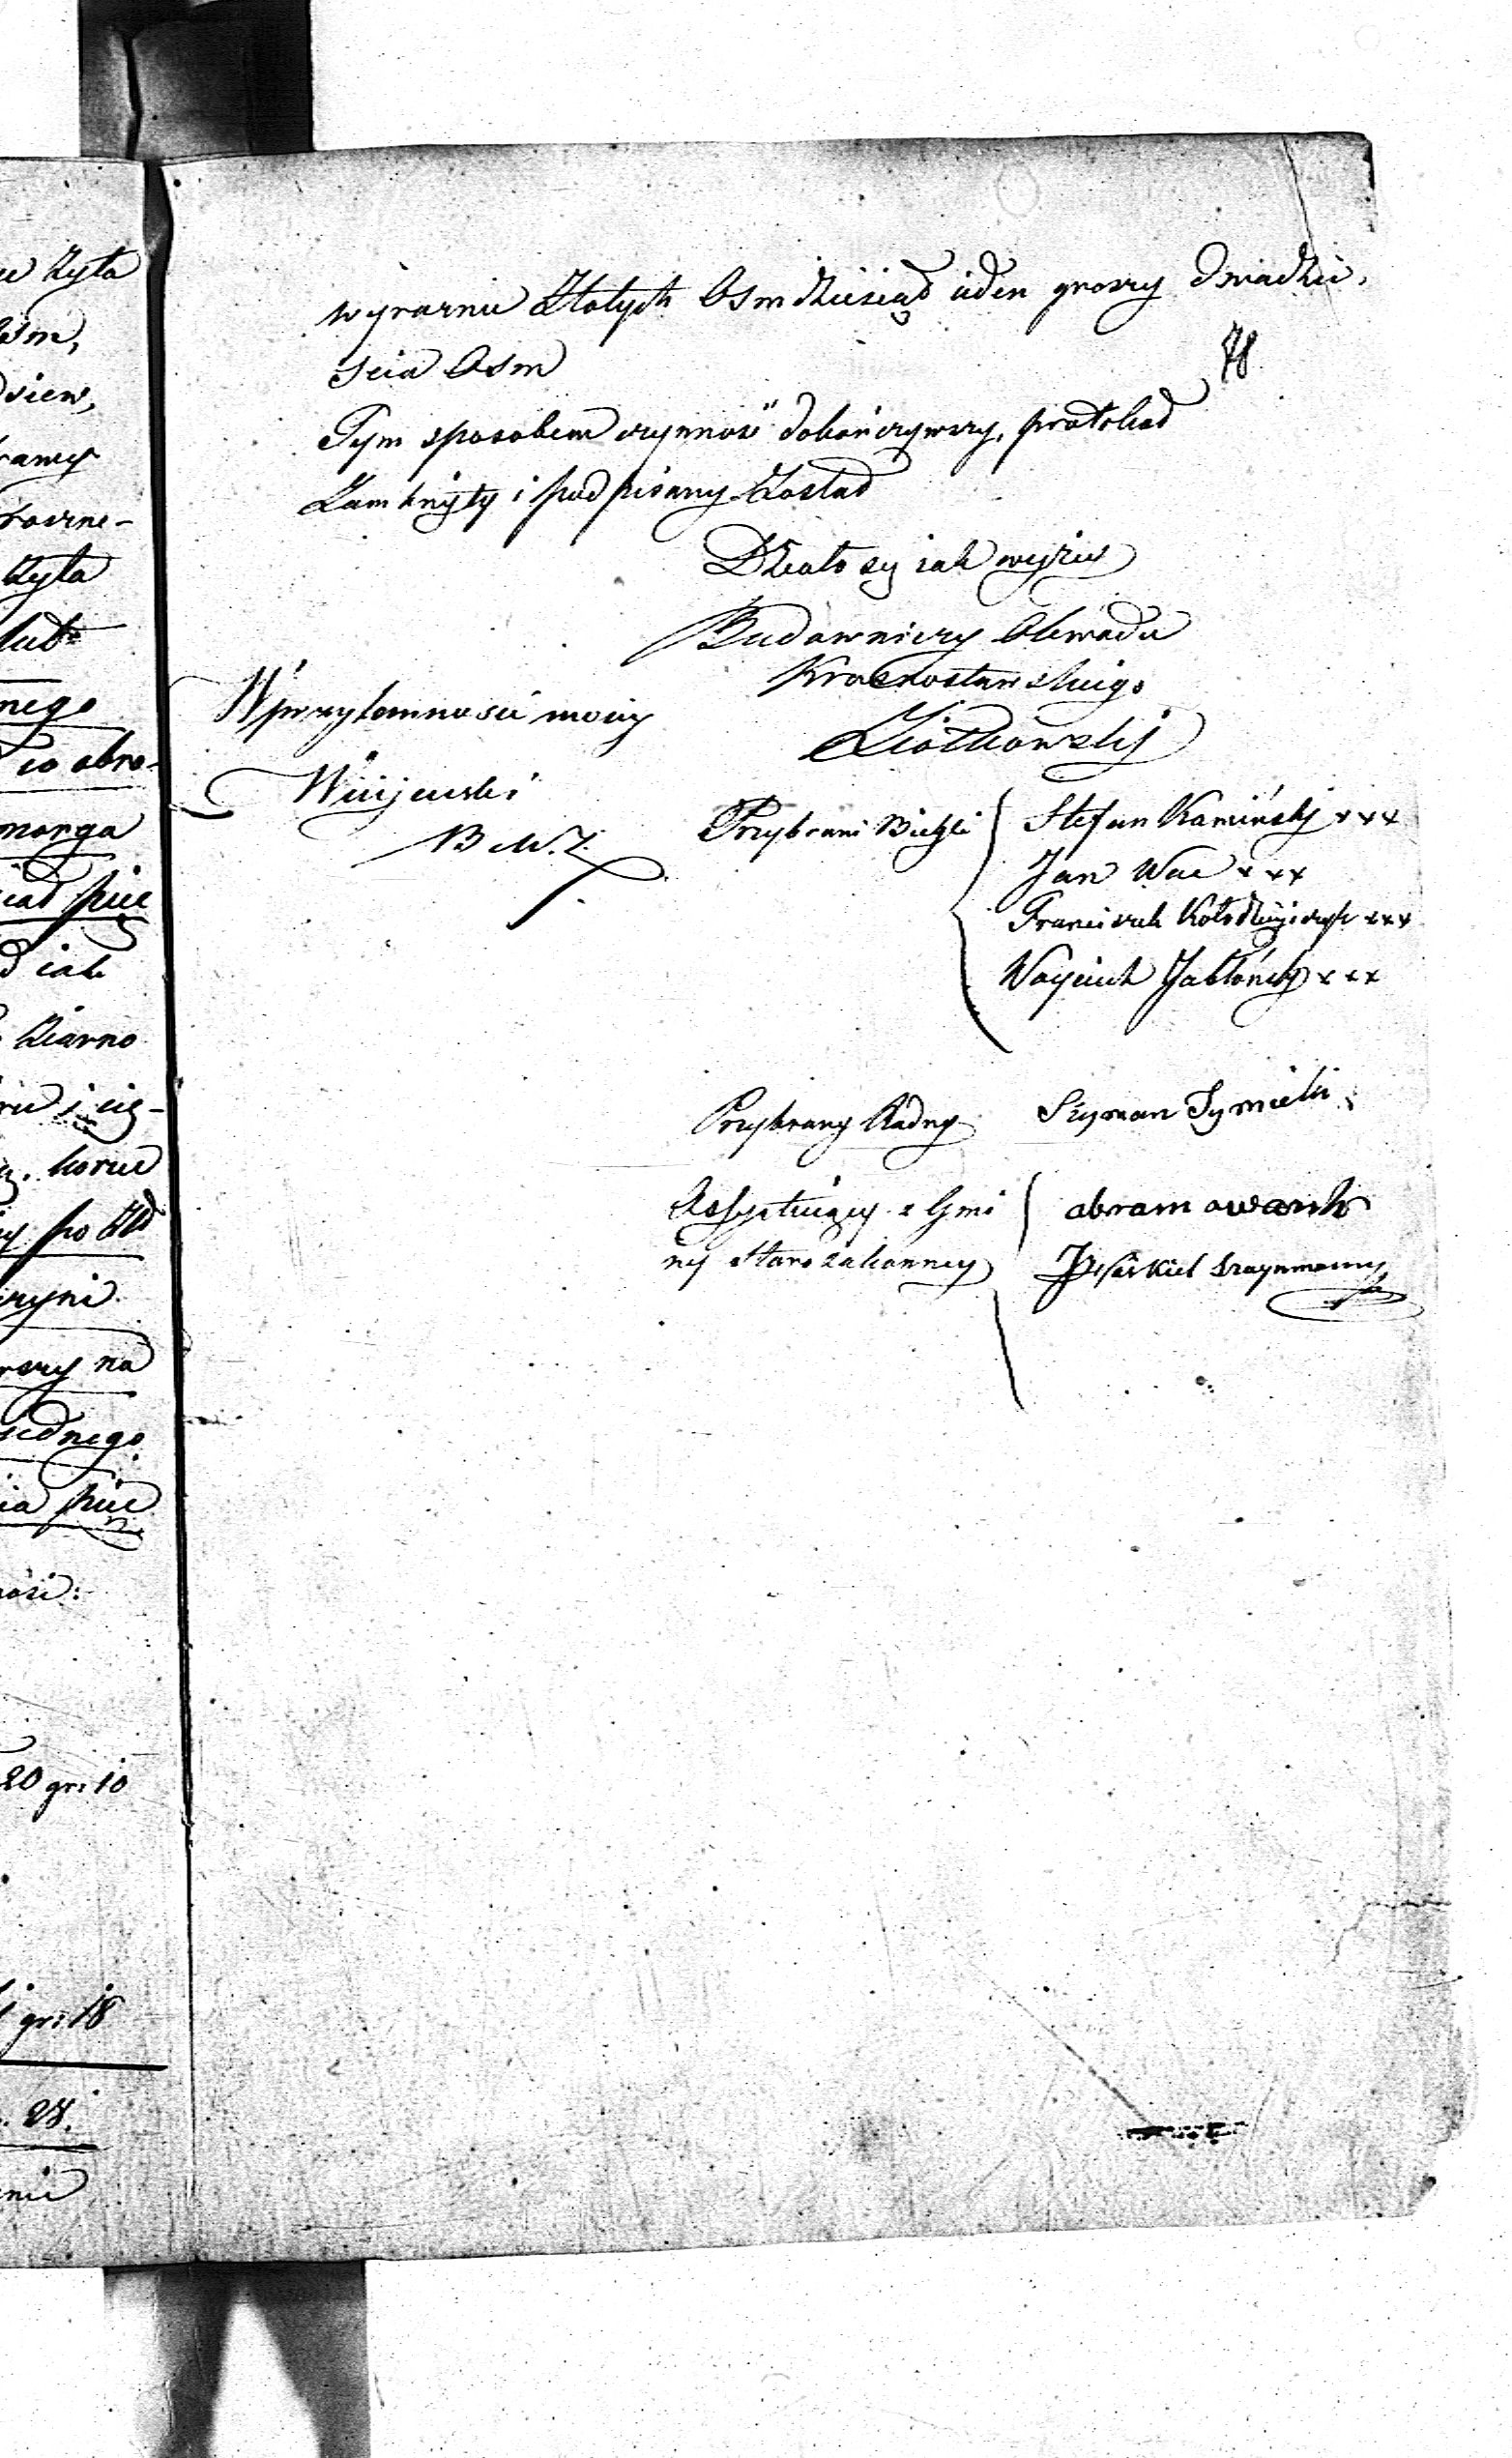 żyta
Osm,
siew,

żyta
lub
nego
co obro-
morga
pięć
iak
Ziarno
i
korzec
po Złł
czyni
na
iednego
pięć
20 gr: 10
gr: 18
28.
wyraznie Złotych Osmdziesiąt ieden groszy Dwadzie,
scia Osm
78
Tym sposobem czynność dokończywszy, protokoł
Zamknięty i podpisany Został
Działo się iak wyżey
Budowniczy Obwodu
Krasnostawskiego
Ziółkowski
W przytomności moiey
Wiijewski
B. M. Z.
Przybrani Biegli
Stefan Kamiński xxx
Jan Wac xxx
Franciszek Kołodzieyczyk xxx
Woyciech Jabłoński xxx
Przybrany Radny Szyman Symicki
Assystuiący z Gmi
ny Starozakonney
abram
Szaynmann